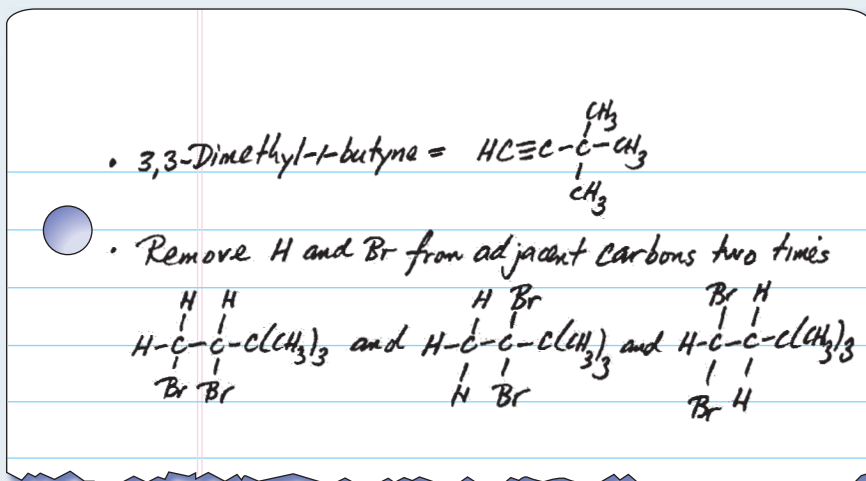 • 3,3-Dimethyl-1-butyne = HC≡C-C-CH3
CH3
CH3
• Remove H and Br from adjacent carbons two times
H H
H-C-C-C(CH3)3 and
Br Br
H Br
H-C-C-C(CH3)3 and
H Br
Br H
H-C-C-C(CH3)3
Br H